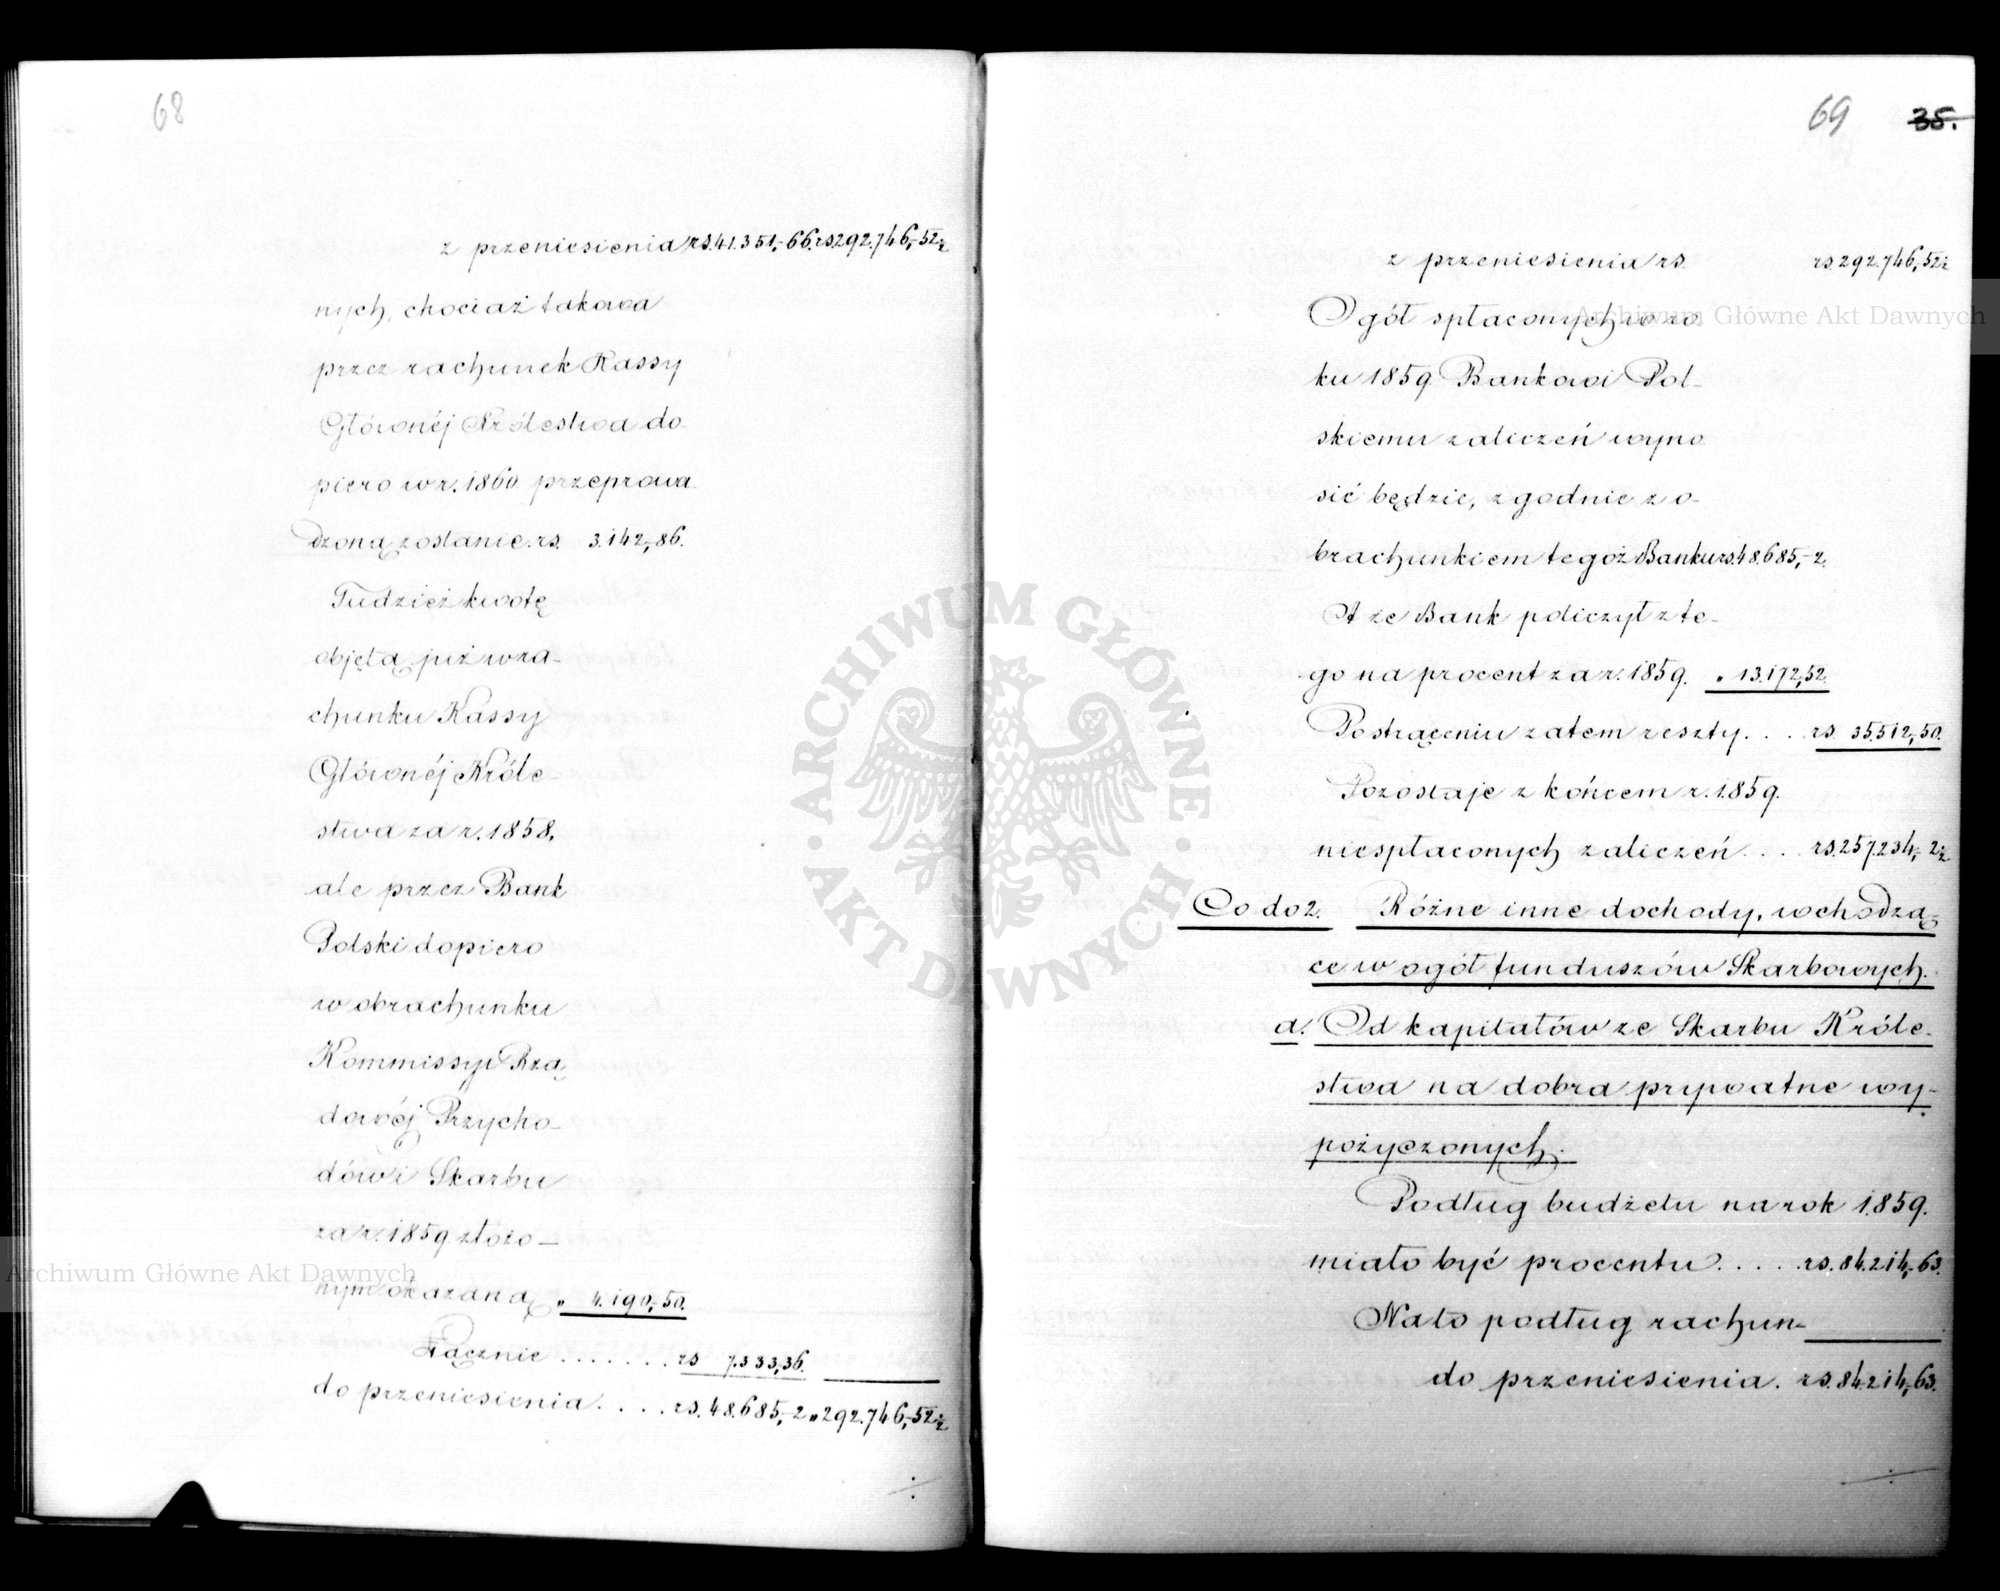 68
z przeniesienia rs. 41.351,-66. rs. 292.746,-52½
nych, chociaż takowa
przez rachunek Kassy
Głównéj Królestwa do
piero w r. 1860 przeprowa
dzoną zostanie. rs. 3.142,-86.
Tudzież kwotę
objętą już w ra-
chunku Kassy
Głównéj Króle-
stwa za r. 1858,
ale przez Bank
Polski dopiero
w obrachunku
Kommissyi Rzą-
dowéj Przycho-
dów i Skarbu
za r. 1859 złożo-
nym okazaną „ 4.190,-50.
Łącznie ....... rs 7.333,36.
do przeniesienia. ... rs. 48.685,-2 „ 292.746,-52½
69 35.
z przeniesienia rs. rs. 292.746,-52½
Ogół spłaconych w ro-
ku 1859 Bankowi Pol-
skiemu zaliczeń wyno
sić będzie, zgodnie z o-
brachunkiem tegoż Banku rs. 48.685,-2.
A że Bank policzył z te-
go na procent za r. 1859. „ 13.172,52.
Postrąceniu zatem reszty. ... rs. 35.512,-50.
Pozostaje z końcem r. 1859.
niespłaconych zaliczeń .... rs. 257.234,-2½
Co do 2. Różne inne dochody, wchodzą-
ce w ogół funduszów Skarbowych.
a. Od kapitałów ze Skarbu Króle-
stwa na dobra prywatne wy-
pożyczonych.
Podług budżetu na rok 1859.
miało być procentu. .... rs. 84.214,-63.
Na to podług rachun-
do przeniesienia. rs. 84.214,-63.
Archiwum Główne Akt Dawnych
Archiwum Główne Akt Dawnych
ARCHIWUM GŁÓWNE · AKT DAWNYCH ·